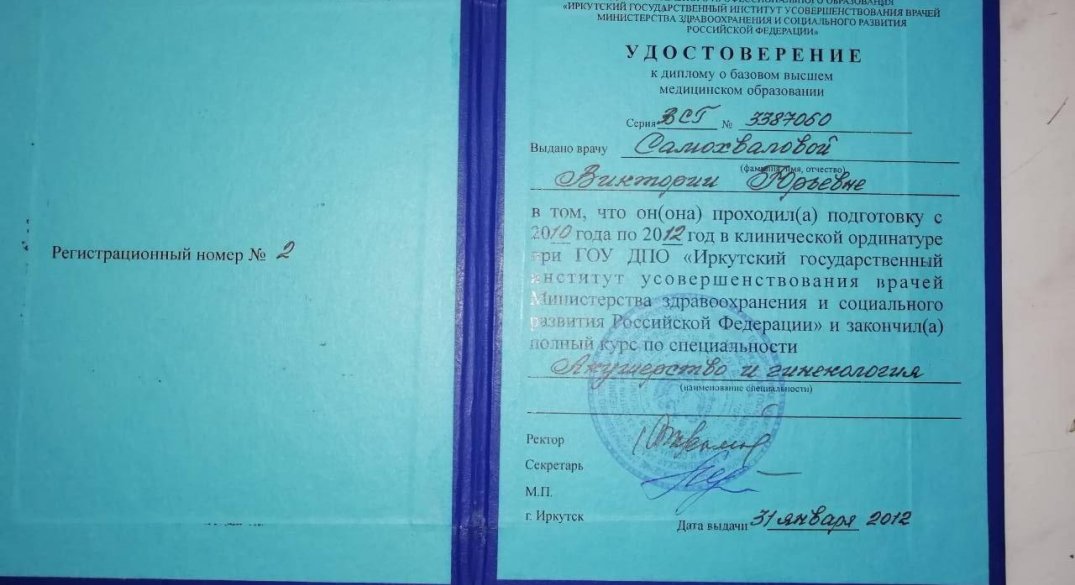 Регистрационный номер № 2
ПРОФЕССИОНАЛЬНОГО ОБРАЗОВАНИЯ
«ИРКУТСКИЙ ГОСУДАРСТВЕННЫЙ ИНСТИТУТ УСОВЕРШЕНСТВОВАНИЯ ВРАЧЕЙ
МИНИСТЕРСТВА ЗДРАВООХРАНЕНИЯ И СОЦИАЛЬНОГО РАЗВИТИЯ
РОССИЙСКОЙ ФЕДЕРАЦИИ»
УДОСТОВЕРЕНИЕ
к диплому о базовом высшем
медицинском образовании
Серия ВСГ № 3387060
Выдано врачу Самохваловой
(фамилия, имя, отчество)
Виктории Юрьевне
в том, что он(она) проходил(а) подготовку с
2010 года по 2012 год в клинической ординатуре
при ГОУ ДПО «Иркутский государственный
институт усовершенствования врачей
Министерства здравоохранения и социального
развития Российской Федерации» и закончил(а)
полный курс по специальности
Акушерство и гинекология
(наименование специальности)
Ректор
Секретарь
М.П.
г. Иркутск
Дата выдачи 31 января 2012